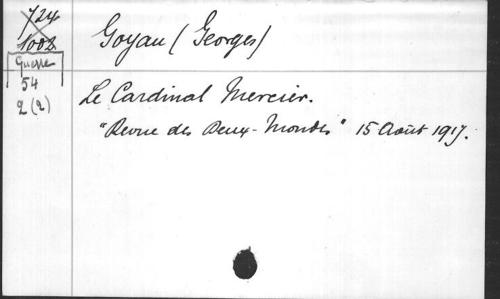 724
1002
Guerre
54
2(2)
Goyau (Georges)
Le Cardinal Mercier.
"Revue des Deux-Mondes" 15 Août 1917.